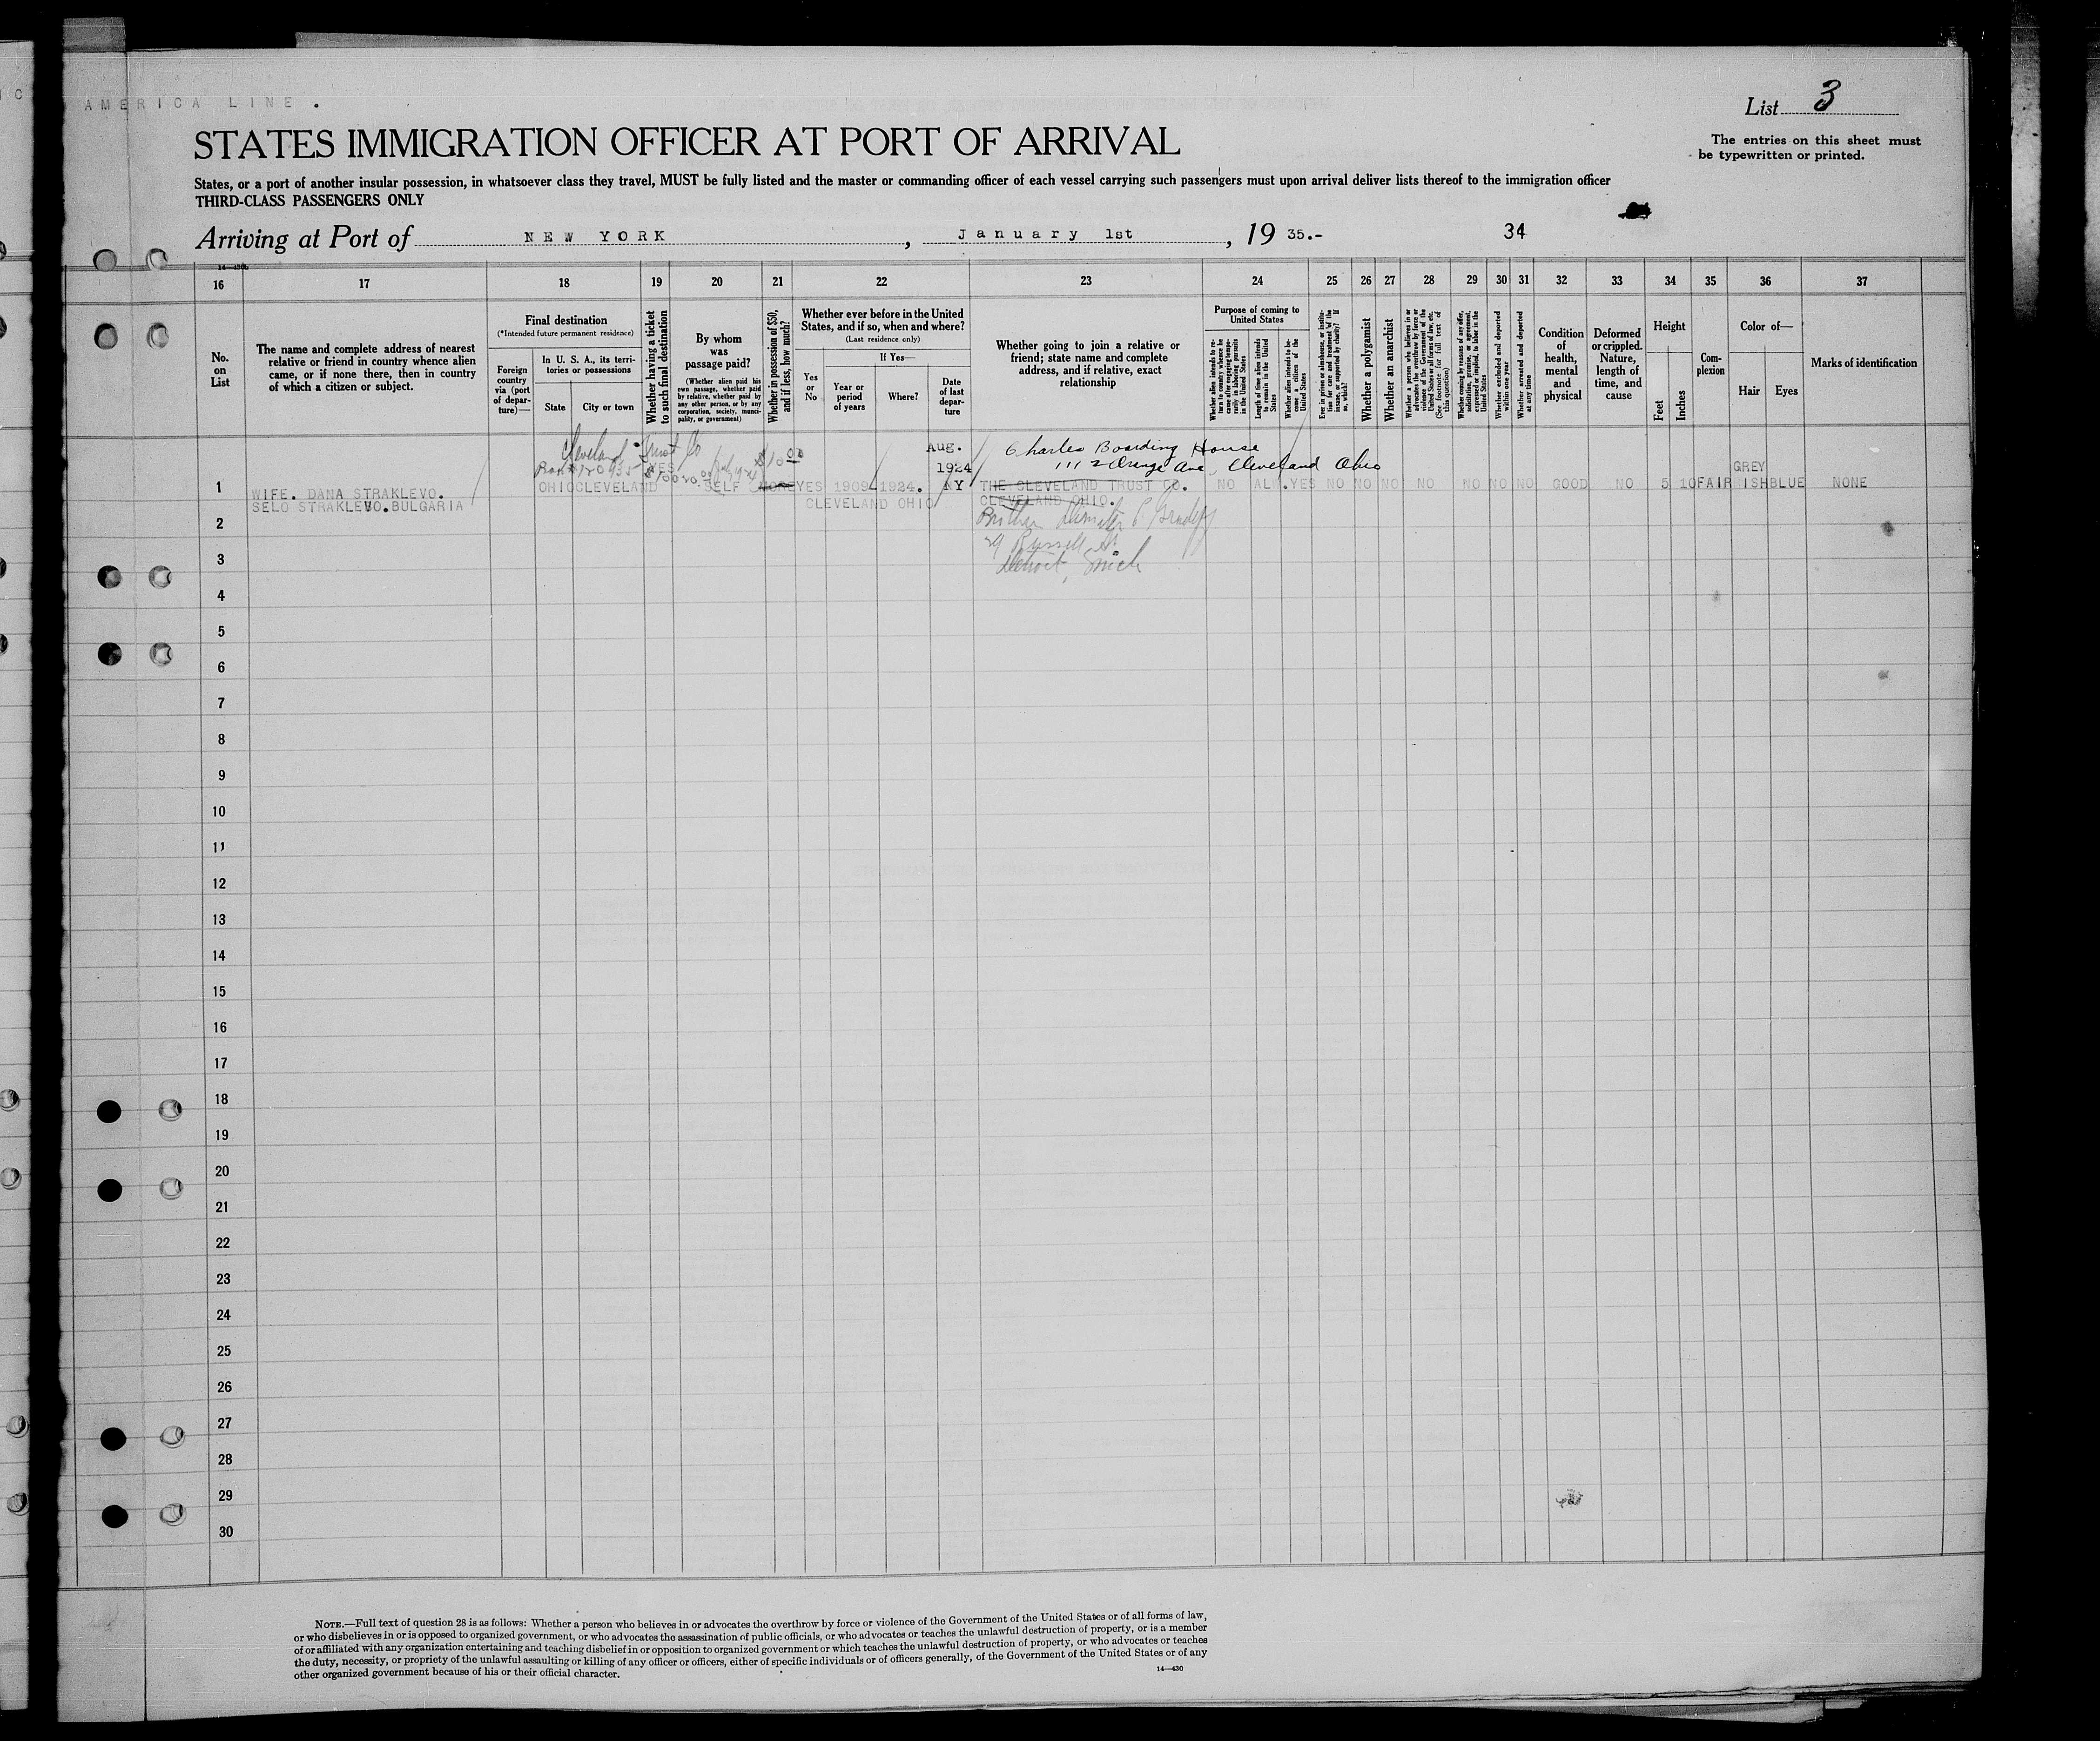 AMERICA LINE .
List 3
STATES IMMIGRATION OFFICER AT PORT OF ARRIVAL
The entries on this sheet must
be typewritten or printed.
States, or a port of another insular possession, in whatsoever class they travel, MUST be fully listed and the master or commanding officer of each vessel carrying such passengers must upon arrival deliver lists thereof to the immigration officer
THIRD-CLASS PASSENGERS ONLY
Arriving at Port of NEW YORK, January 1st, 19 35.- 34
16 17 18 19 20 21 22 23 24 25 26 27 28 29 30 31 32 33 34 35 36 37
No.
on
List
The name and complete address of nearest
relative or friend in country whence alien
came, or if none there, then in country
of which a citizen or subject.
Final destination
(*Intended future permanent residence)
Foreign
country
via (port
of depar-
ture)—
In U. S. A., its terri-
tories or possessions
State City or town
Whether having a ticket
to such final destination
By whom
was
passage paid?
(Whether alien paid his
own passage, whether paid
by relative, whether paid by
any other person, or by any
corporation, society, munici-
pality, or government)
Whether in possession of $50,
and if less, how much?
Whether ever before in the United
States, and if so, when and where?
(Last residence only)
Yes
or
No
If Yes—
Year or
period
of years
Where?
Date
of last
depar-
ture
Whether going to join a relative or
friend; state name and complete
address, and if relative, exact
relationship
Purpose of coming to
United States
Whether alien intends to re-
turn to country whence he
came after engaging tempo-
rarily in laboring pursuits
in the United States
Length of time alien intends
to remain in the United
States
Whether alien intends to be-
come a citizen of the
United States
Ever in prison or almshouse, or institu-
tion for care and treatment of the
insane, or supported by charity? If
so, which?
Whether a polygamist
Whether an anarchist
Whether a person who believes in or
advocates the overthrow by force or
violence of the Government of the
United States or all forms of law, etc.
(See footnote for full text of
this question)
Whether coming by reasons of any offer,
solicitation, promise, or agreement,
expressed or implied, to labor in the
United States
Whether excluded and deported
within one year
Whether arrested and deported
at any time
Condition
of
health,
mental
and
physical
Deformed
or crippled.
Nature,
length of
time, and
cause
Height
Feet Inches
Com-
plexion
Color of—
Hair Eyes
Marks of identification
Cleveland Trust Co $10 00
Aug.
1924
Charles Boarding House
1112 Orange Ave, Cleveland Ohio
YES
GREY
1 WIFE. DANA STRAKLEVO. OHIO CLEVELAND SELF YES 1909 1924. NY THE CLEVELAND TRUST CO. NO ALW. YES NO NO NO NO NO NO NO GOOD NO 5 10 FAIR ISH BLUE NONE
SELO STRAKLEVO.BULGARIA CLEVELAND OHIO CLEVELAND OHIO.
2
Brother
Russell St
3
Detroit, Mich
4
5
6
7
8
9
10
11
12
13
14
15
16
17
18
19
20
21
22
23
24
25
26
27
28
29
30
NOTE.—Full text of question 28 is as follows: Whether a person who believes in or advocates the overthrow by force or violence of the Government of the United States or of all forms of law,
or who disbelieves in or is opposed to organized government, or who advocates the assassination of public officials, or who advocates or teaches the unlawful destruction of property, or is a member
of or affiliated with any organization entertaining and teaching disbelief in or opposition to organized government or which teaches the unlawful destruction of property, or who advocates or teaches
the duty, necessity, or propriety of the unlawful assaulting or killing of any officer or officers, either of specific individuals or of officers generally, of the Government of the United States or of any
other organized government because of his or their official character.
14—430